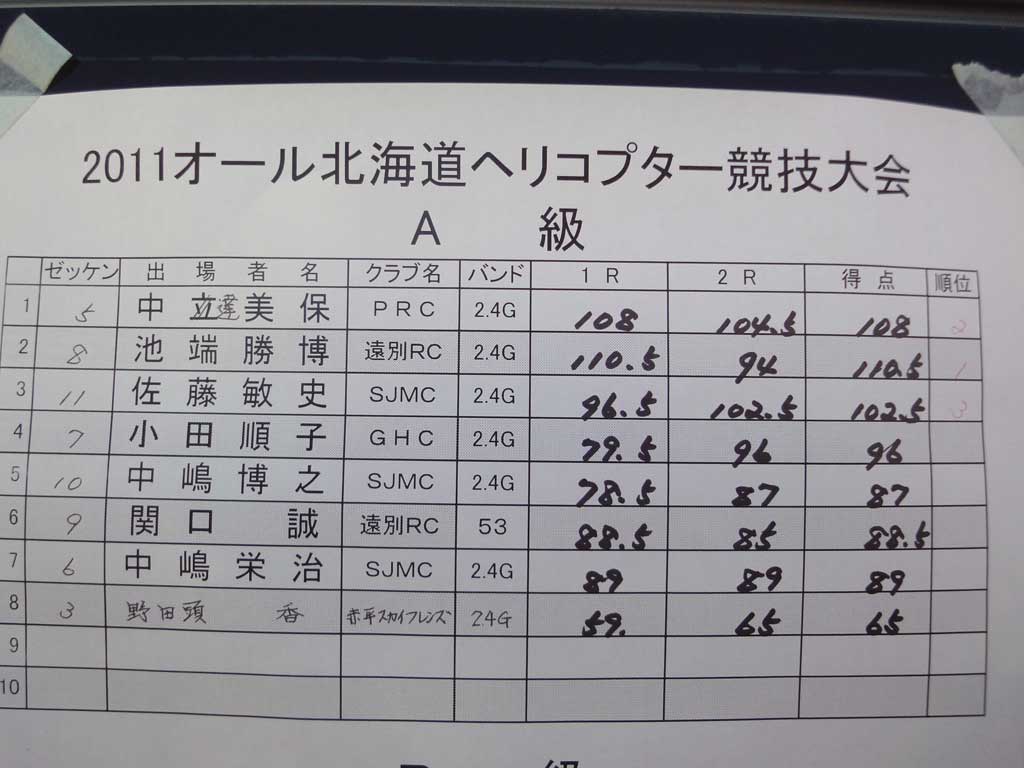 2011オール北海道ヘリコプター競技大会
A 級
ゼッケン 出場者名 クラブ名 バンド 1R 2R 得点 順位
1 5 中立達美保 PRC 2.4G 108 104.5 108 2
2 8 池端勝博 遠別RC 2.4G 110.5 94 110.5 1
3 11 佐藤敏史 SJMC 2.4G 96.5 102.5 102.5 3
4 7 小田順子 GHC 2.4G 79.5 96 96
5 10 中嶋博之 SJMC 2.4G 78.5 87 87
6 9 関口 誠 遠別RC 53 88.5 85 88.5
7 6 中嶋栄治 SJMC 2.4G 89 89 89
8 3 野田頭 香 赤平スカイフレンズ 2.4G 59. 65 65
9
10